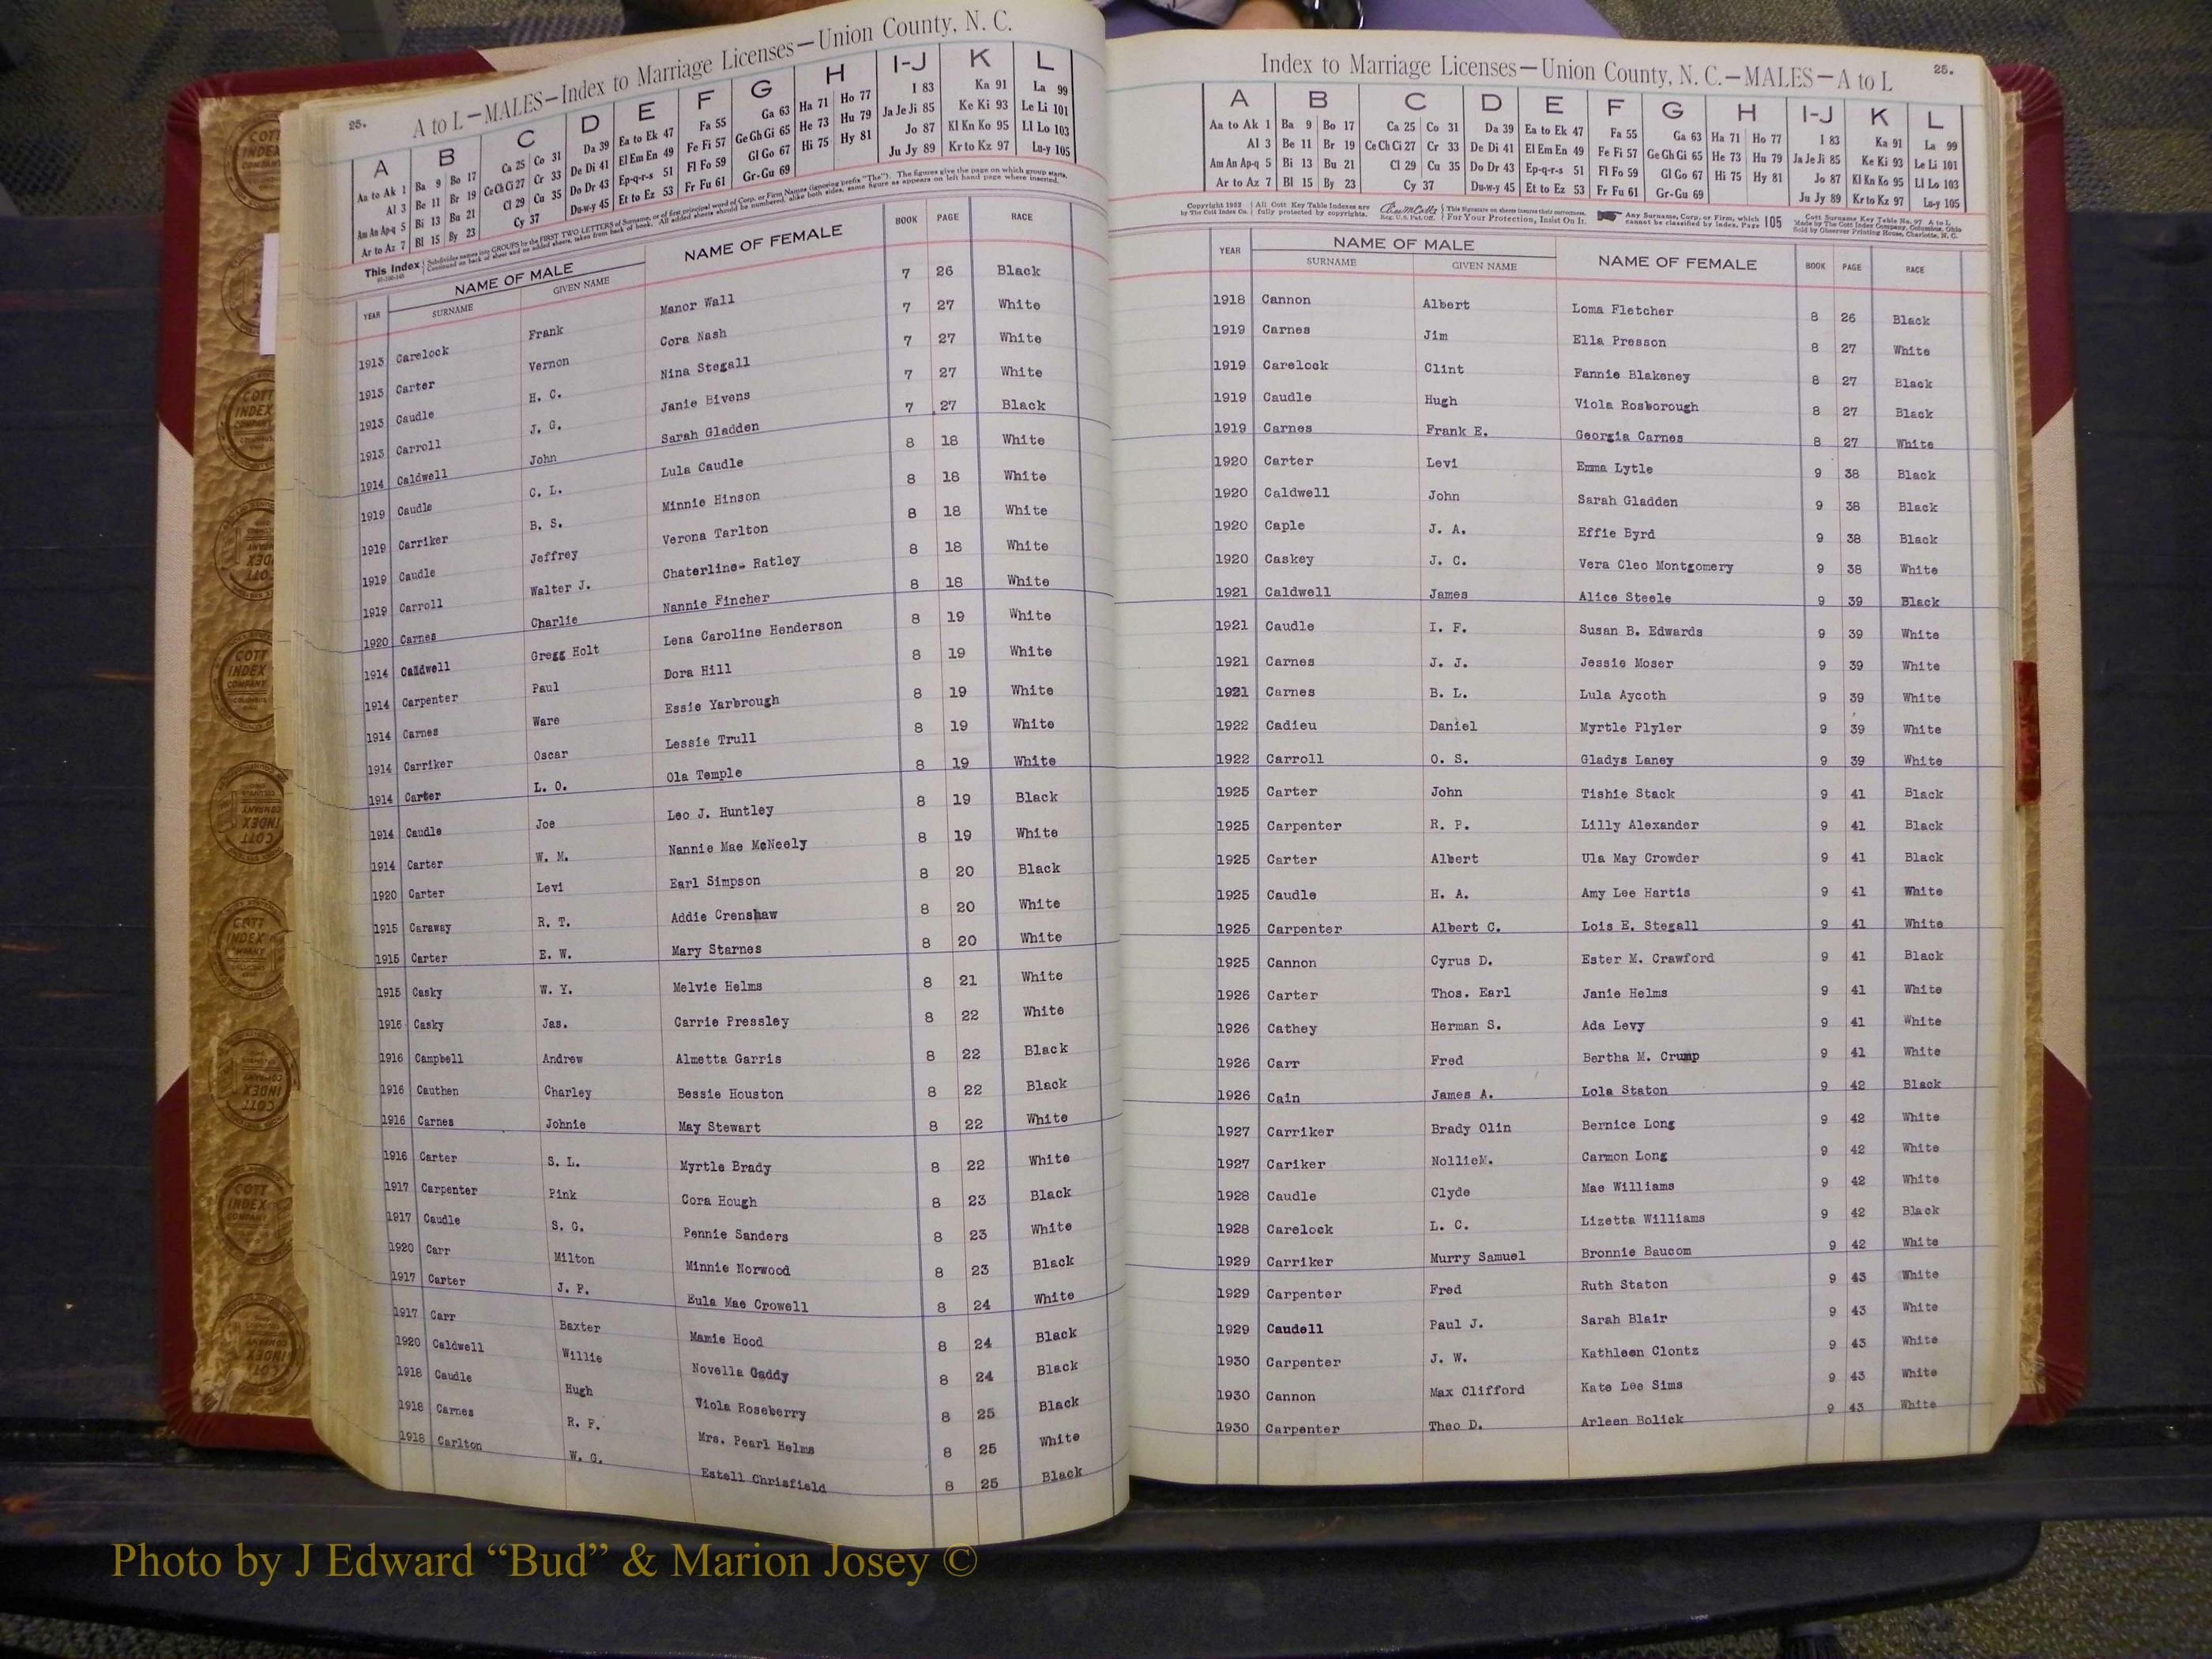 25. A to L—MALES—Index to Marriage Licenses—Union County, N. C.
A B C D E F G H I-J K L
Aa to Ak 1 Ba 9 Bo 17 Ca 25 Co 31 Da 39 Ea to Ek 47 Fa 55 Ga 63 Ha 71 Ho 77 I 83 Ka 91 La 99
Al 3 Be 11 Br 19 Ce Ch Ci 27 Cr 33 De Di 41 El Em En 49 Fe Fi 57 Ge Gh Gi 65 He 73 Hu 79 Ja Je Ji 85 Ke Ki 93 Le Li 101
Am An Ap-q 5 Bi 13 Bu 21 Cl 29 Cu 35 Do Dr 43 Ep-q-r-s 51 Fl Fo 59 Gl Go 67 Hi 75 Hy 81 Jo 87 Kl Kn Ko 95 Ll Lo 103
Ar to Az 7 Bl 15 By 23 Cy 37 Du-w-y 45 Et to Ez 53 Fr Fu 61 Gr-Gu 69 Ju Jy 89 Kr to Kz 97 Lu-y 105
This Index Subdivides names into GROUPS by the FIRST TWO LETTERS of Surname, or of first principal word of Corp. or Firm Names (ignoring prefix "The"). The figures give the page on which group starts.
Continued on back of sheet and on added sheets, taken from back of book. All added sheets should be numbered, alike both sides, same figure as appears on left hand page where inserted.
YEAR NAME OF MALE NAME OF FEMALE BOOK PAGE RACE
SURNAME GIVEN NAME
1913 Carelock Frank Manor Wall 7 26 Black
1913 Carter Vernon Cora Nash 7 27 White
1913 Caudle H. C. Nina Stegall 7 27 White
1913 Carroll J. G. Janie Bivens 7 27 White
1914 Caldwell John Sarah Gladden 7 27 Black
1919 Caudle C. L. Lula Caudle 8 18 White
1919 Carriker B. S. Minnie Hinson 8 18 White
1919 Caudle Jeffrey Verona Tarlton 8 18 White
1919 Carroll Walter J. Chaterline- Ratley 8 18 White
1920 Carnes Charlie Nannie Fincher 8 18 White
1914 Caldwell Gregg Holt Lena Caroline Henderson 8 19 White
1914 Carpenter Paul Dora Hill 8 19 White
1914 Carnes Ware Essie Yarbrough 8 19 White
1914 Carriker Oscar Lessie Trull 8 19 White
1914 Carter L. O. Ola Temple 8 19 White
1914 Caudle Joe Leo J. Huntley 8 19 Black
1914 Carter W. M. Nannie Mae McNeely 8 19 White
1920 Carter Levi Earl Simpson 8 20 Black
1915 Caraway R. T. Addie Crenshaw 8 20 White
1915 Carter E. W. Mary Starnes 8 20 White
1915 Casky W. Y. Melvie Helms 8 21 White
1916 Casky Jas. Carrie Pressley 8 22 White
1916 Campbell Andrew Almetta Garris 8 22 Black
1916 Cauthen Charley Bessie Houston 8 22 Black
1916 Carnes Johnie May Stewart 8 22 White
1916 Carter S. L. Myrtle Brady 8 22 White
1917 Carpenter Pink Cora Hough 8 23 Black
1917 Caudle S. G. Pennie Sanders 8 23 White
1920 Carr Milton Minnie Norwood 8 23 Black
1917 Carter J. P. Eula Mae Crowell 8 24 White
1917 Carr Baxter Mamie Hood 8 24 Black
1920 Caldwell Willie Novella Gaddy 8 24 Black
1918 Caudle Hugh Viola Roseberry 8 25 Black
1918 Carnes R. F. Mrs. Pearl Helms 8 25 White
1918 Carlton W. G. Estell Chrisfield 8 25 Black
Index to Marriage Licenses—Union County, N. C.—MALES—A to L 25.
A B C D E F G H I-J K L
Aa to Ak 1 Ba 9 Bo 17 Ca 25 Co 31 Da 39 Ea to Ek 47 Fa 55 Ga 63 Ha 71 Ho 77 I 83 Ka 91 La 99
Al 3 Be 11 Br 19 Ce Ch Ci 27 Cr 33 De Di 41 El Em En 49 Fe Fi 57 Ge Gh Gi 65 He 73 Hu 79 Ja Je Ji 85 Ke Ki 93 Le Li 101
Am An Ap-q 5 Bi 13 Bu 21 Cl 29 Cu 35 Do Dr 43 Ep-q-r-s 51 Fl Fo 59 Gl Go 67 Hi 75 Hy 81 Jo 87 Kl Kn Ko 95 Ll Lo 103
Ar to Az 7 Bl 15 By 23 Cy 37 Du-w-y 45 Et to Ez 53 Fr Fu 61 Gr-Gu 69 Ju Jy 89 Kr to Kz 97 Lu-y 105
Copyright 1932 All Cott Key Table Indexes are This Signature on sheets insures their correctness. Any Surname, Corp. or Firm, which 105 Cott Surname Key Table No. 97 A to L
by The Cott Index Co. fully protected by copyrights. Reg. U.S. Pat. Off. For Your Protection, Insist On It. cannot be classified by Index, Page Made by The Cott Index Company, Columbus, Ohio
Sold by Observer Printing House, Charlotte, N. C.
YEAR NAME OF MALE NAME OF FEMALE BOOK PAGE RACE
SURNAME GIVEN NAME
1918 Cannon Albert Loma Fletcher 8 26 Black
1919 Carnes Jim Ella Presson 8 27 White
1919 Carelock Clint Fannie Blakeney 8 27 Black
1919 Caudle Hugh Viola Rosborough 8 27 Black
1919 Carnes Frank E. Georgia Carnes 8 27 White
1920 Carter Levi Emma Lytle 9 38 Black
1920 Caldwell John Sarah Gladden 9 38 Black
1920 Caple J. A. Effie Byrd 9 38 Black
1920 Caskey J. C. Vera Cleo Montgomery 9 38 White
1921 Caldwell James Alice Steele 9 39 Black
1921 Caudle I. F. Susan B. Edwards 9 39 White
1921 Carnes J. J. Jessie Moser 9 39 White
1921 Carnes B. L. Lula Aycoth 9 39 White
1922 Cadieu Daniel Myrtle Plyler 9 39 White
1922 Carroll O. S. Gladys Laney 9 39 White
1925 Carter John Tishie Stack 9 41 Black
1925 Carpenter R. P. Lilly Alexander 9 41 Black
1925 Carter Albert Ula May Crowder 9 41 Black
1925 Caudle H. A. Amy Lee Hartis 9 41 White
1925 Carpenter Albert C. Lois E. Stegall 9 41 White
1925 Cannon Cyrus D. Ester M. Crawford 9 41 Black
1926 Carter Thos. Earl Janie Helms 9 41 White
1926 Cathey Herman S. Ada Levy 9 41 White
1926 Carr Fred Bertha M. Crump 9 41 White
1926 Cain James A. Lola Staton 9 42 Black
1927 Carriker Brady Olin Bernice Long 9 42 White
1927 Cariker NollieM. Carmon Long 9 42 White
1928 Caudle Clyde Mae Williams 9 42 White
1928 Carelock L. C. Lizetta Williams 9 42 Black
1929 Carriker Murry Samuel Bronnie Baucom 9 42 White
1929 Carpenter Fred Ruth Staton 9 43 White
1929 Caudell Paul J. Sarah Blair 9 43 White
1930 Carpenter J. W. Kathleen Clontz 9 43 White
1930 Cannon Max Clifford Kate Lee Sims 9 43 White
1930 Carpenter Theo D. Arleen Bolick 9 43 White
Photo by J Edward “Bud” & Marion Josey ©